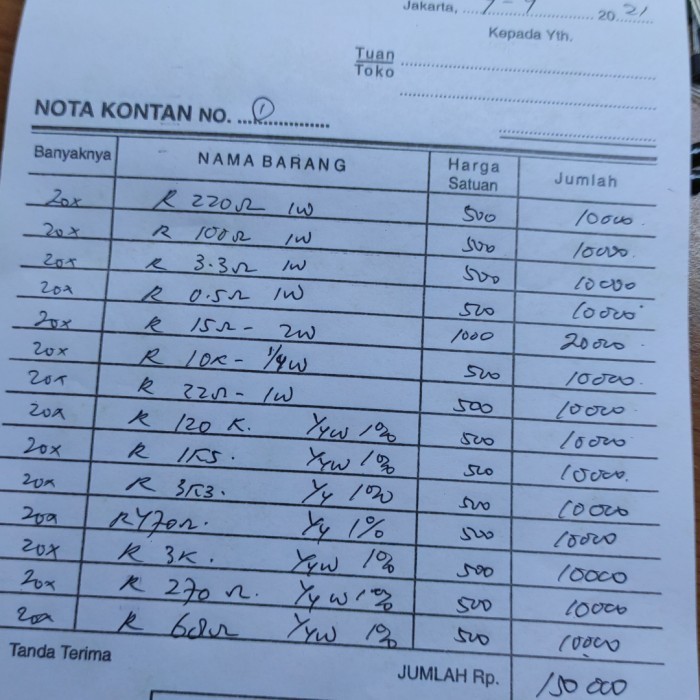 Jakarta, 7 - 9 20 21
Kepada Yth.
Tuan
Toko
NOTA KONTAN NO. 1
Banyaknya NAMA BARANG Harga Satuan Jumlah
20x R 220Ω 1W 500 10000
20x R 100Ω 1W 500 10000
20x R 3.3Ω 1W 500 10000
20x R 0.5Ω 1W 500 10000
20x R 15Ω - 2W 1000 20000
20x R 10K - 1/4W 500 10000
20x R 22Ω - 1W 500 10000
20x R 120 K. 1/4W 1% 500 10000
20x R 1K5. 1/4W 1% 500 10000
20x R 3K3. 1/4 1% 500 10000
20x R 470Ω. 1/4 1% 500 10000
20x R 3K. 1/4W 1% 500 10000
20x R 270 Ω. 1/4W 1% 500 10000
20x R 68Ω 1/4W 1% 500 10000
Tanda Terima JUMLAH Rp. 150 000